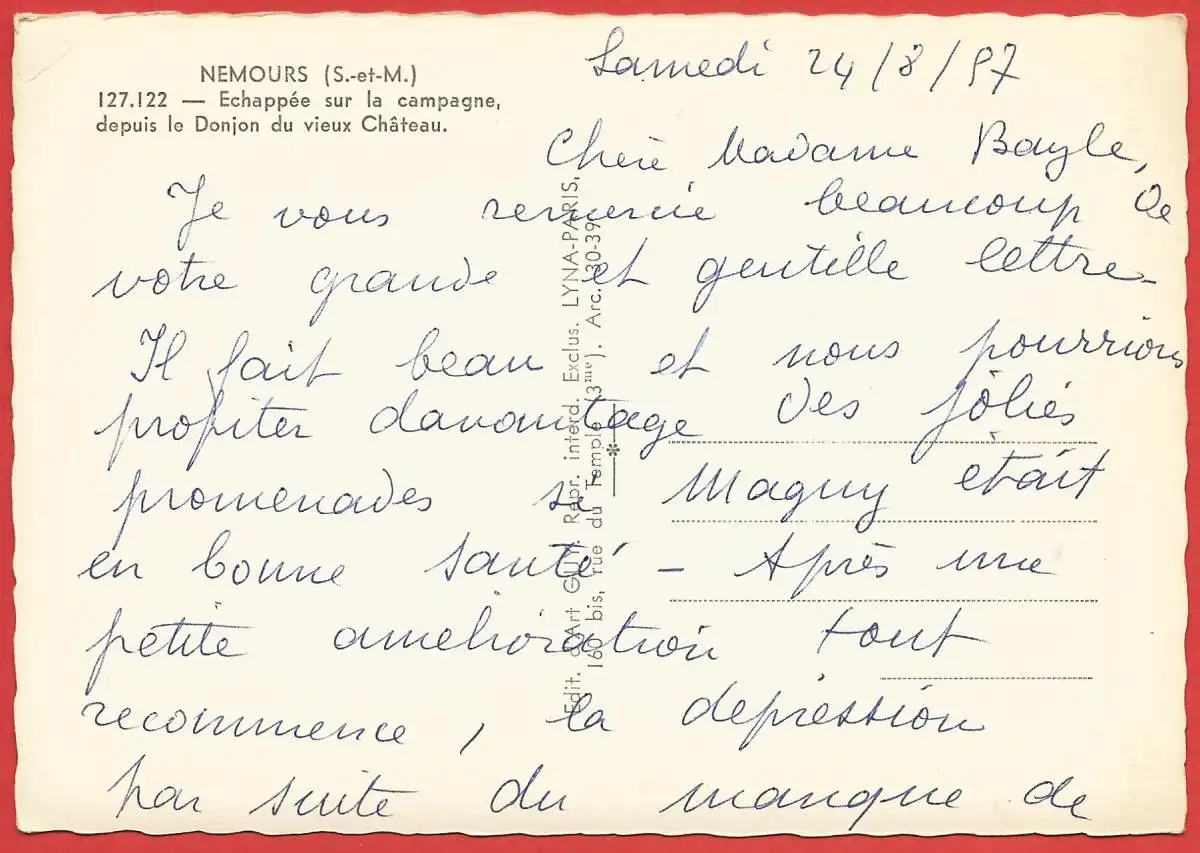 NEMOURS (S.-et-M.)
127.122 — Echappée sur la campagne,
depuis le Donjon du vieux Château.
Samedi 24/8/57
Chère Madame Bayle,
Je vous remercie beaucoup de
votre grande et gentille lettre -
Il fait beau et nous pourrions
profiter davantage des jolies
promenades si Maguy était
en bonne santé - Après une
petite amélioration tout
recommence, la dépression
par suite du manque de
Edit. d'Art GUY. Repr. interd. Exclus. LYNA-PARIS,
160 bis, rue du Temple (3me). Arc. 30-39